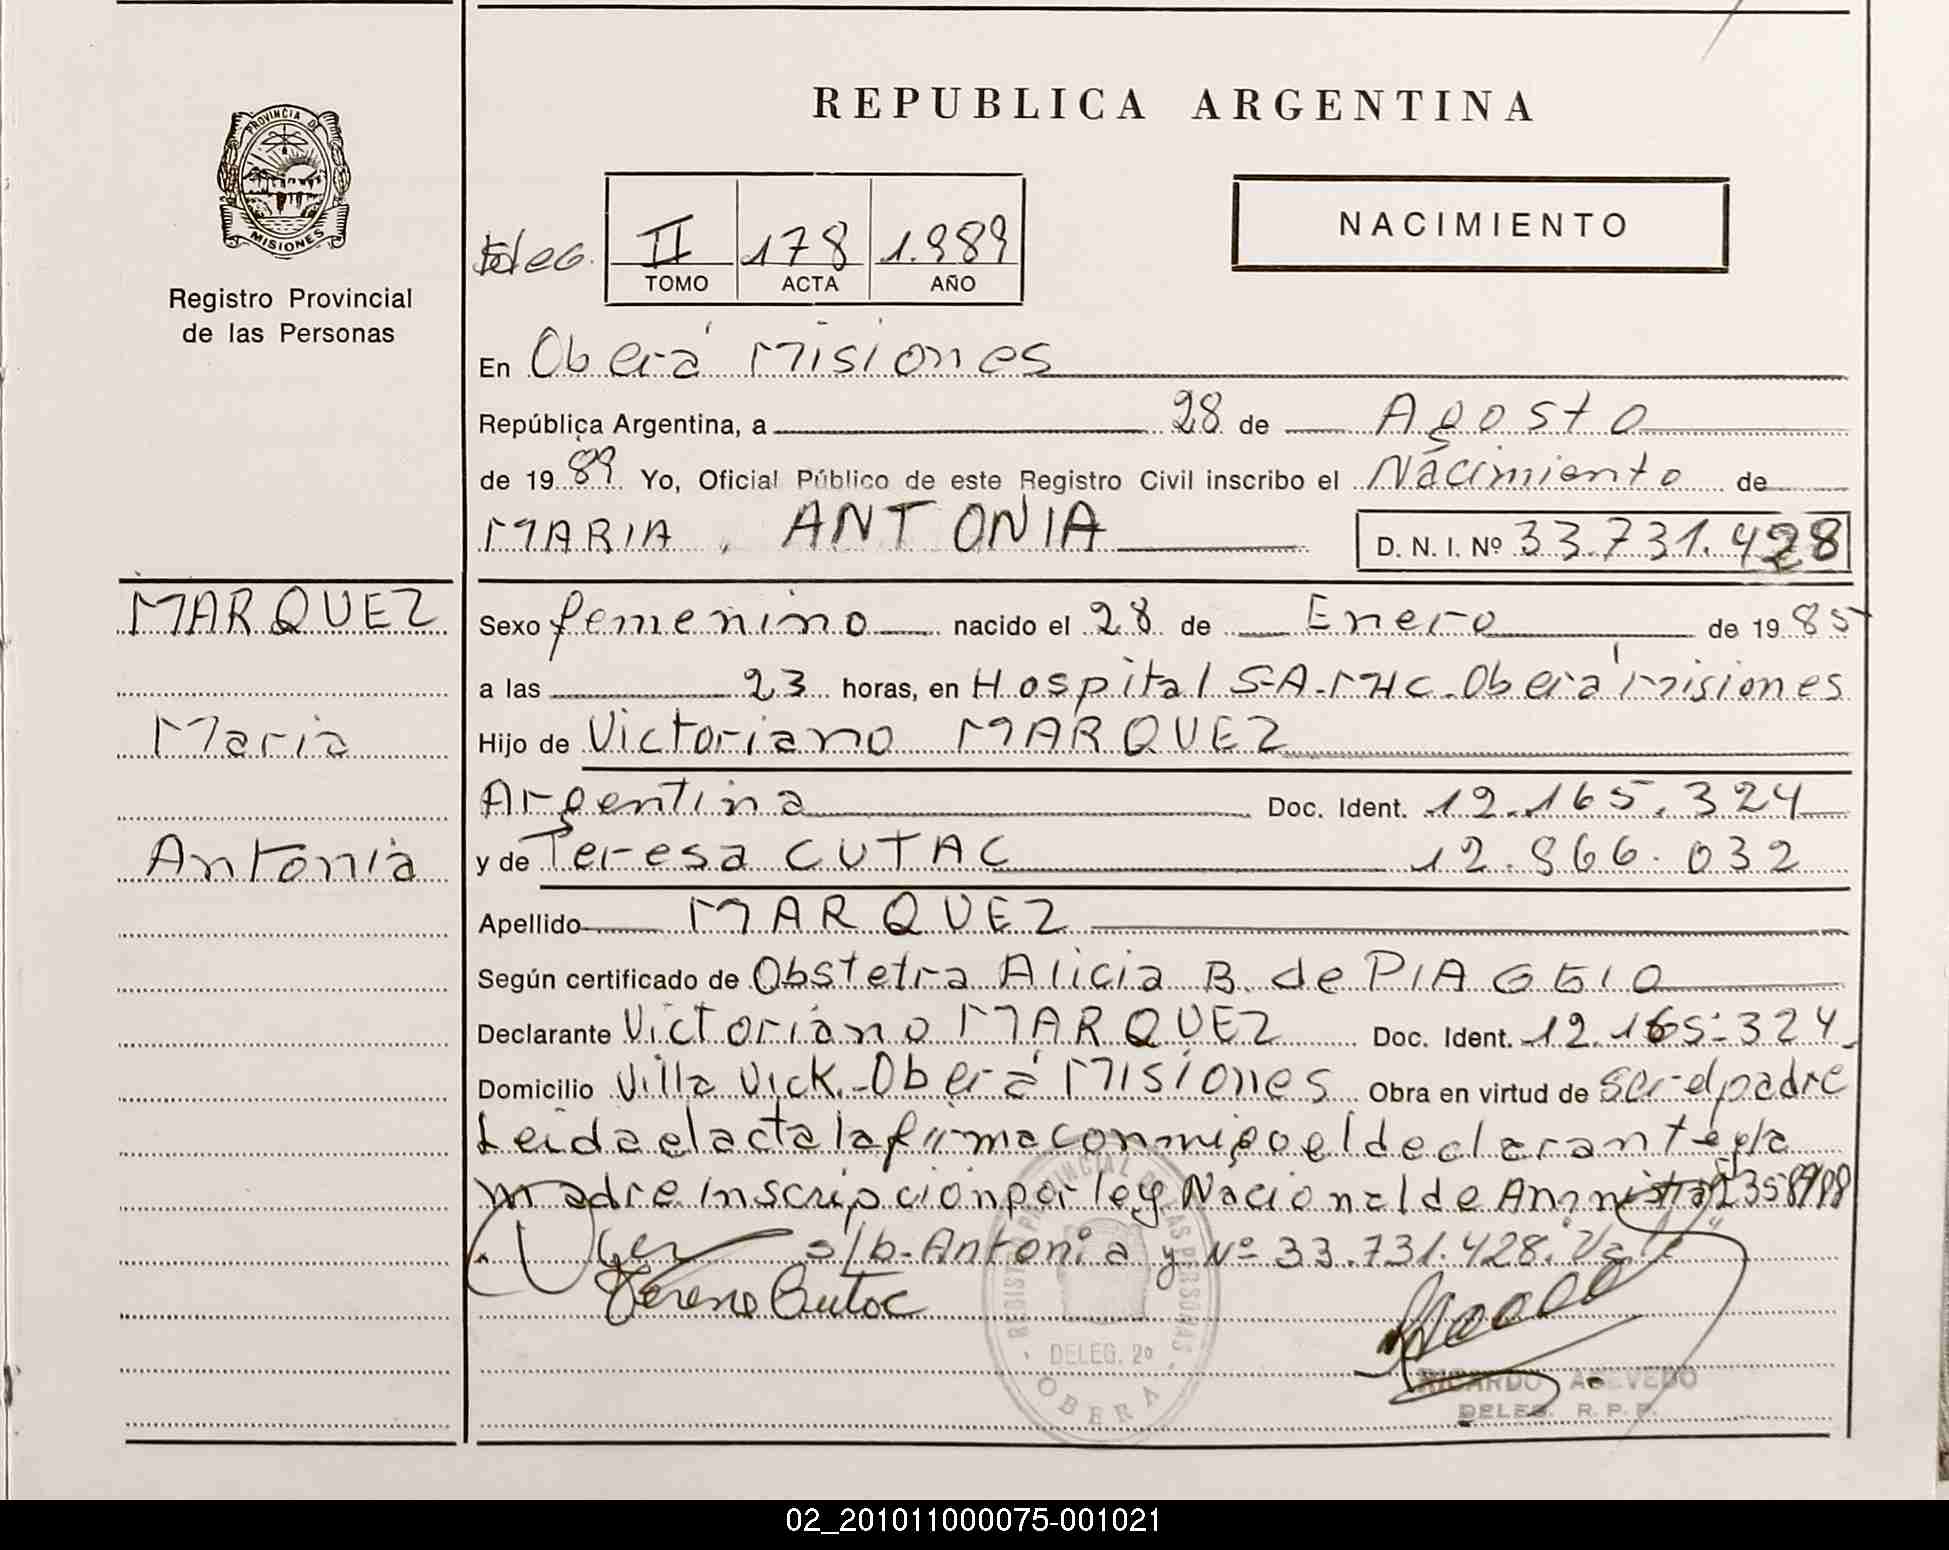 REPUBLICA ARGENTINA
PROVINCIA DE MISIONES
Registro Provincial
de las Personas
NACIMIENTO
II 178 1.989
TOMO ACTA AÑO
En Oberá Misiones
República Argentina, a 28 de Agosto
de 1989 Yo, Oficial Público de este Registro Civil inscribo el Nacimiento de
MARIA ANTONIA D. N. I. Nº 33.731.428
MARQUEZ
Maria
Antonia
Sexo femenino nacido el 28 de Enero de 1985
a las 23 horas, en Hospital S-A-MHC-Oberá Misiones
Hijo de Victoriano MARQUEZ
Argentina Doc. Ident. 12.165.324
y de Teresa CUTAC 12.866.032
Apellido MARQUEZ
Según certificado de Obstetra Alicia B. de PIAGGIO
Declarante Victoriano MARQUEZ Doc. Ident. 12.165.324
Domicilio Villa Vick.-Oberá Misiones Obra en virtud de ser el padre
Leida el acta la firma conmigo el declarante y la
madre inscripción por ley Nacional de Amnistia
s/b-Antonia y Nº 33.731.428. Vale
Terese Cutac
REGISTRO PROVINCIAL DE LAS PERSONAS
DELEG. 2º
OBERA
RICARDO ACEVEDO
DELEG. R. P. P.
02_201011000075-001021